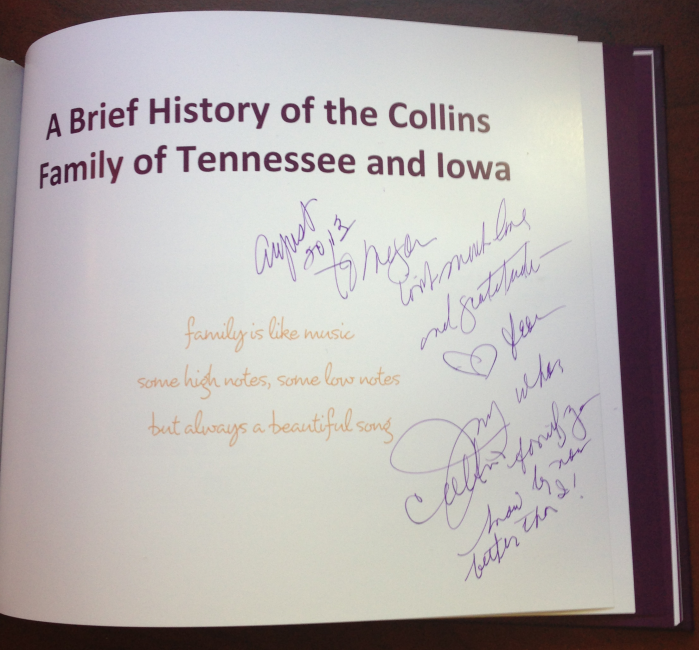 A Brief History of the Collins
Family of Tennessee and Iowa
August
2013
to Megan
with much love
and gratitude—
family is like music
some high notes, some low notes
but always a beautiful song
whose
Collins family you
know by now
better than I!